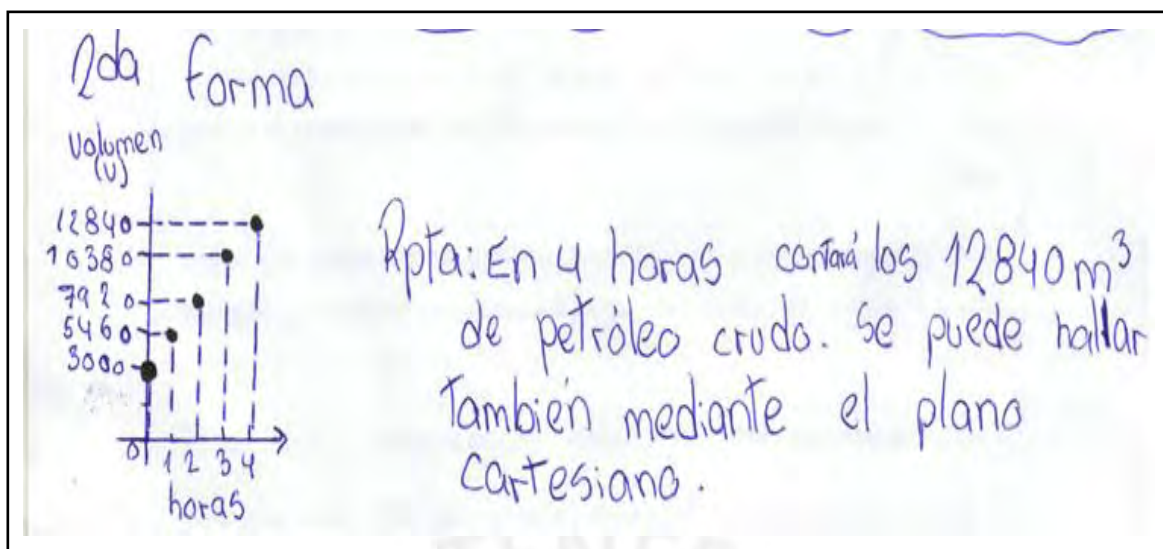 2da forma
Volumen
(v)
12840
10380
7920
5460
3000
0 1 2 3 4
horas
Rpta: En 4 horas contará los 12840 m³
de petróleo crudo. Se puede hallar
también mediante el plano
cartesiano.